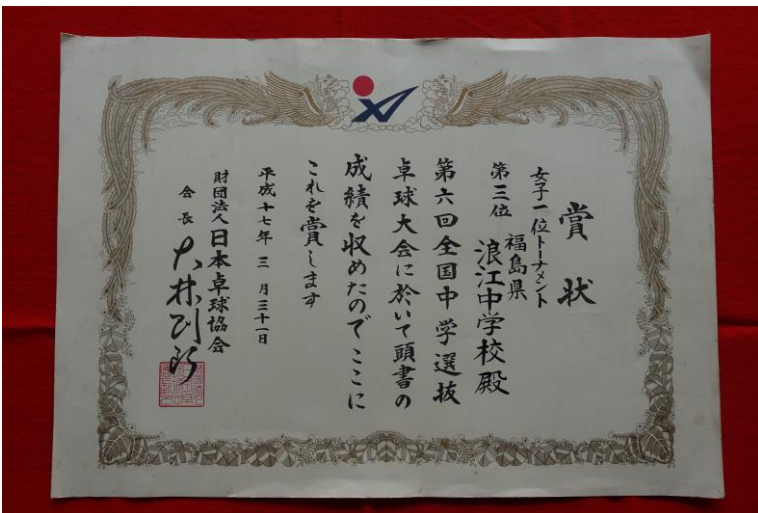 賞状
女子一位トーナメント
第三位
福島県
浪江中学校殿
第六回全国中学選抜
卓球大会に於いて頭書の
成績を収めたのでここに
これを賞します
平成十七年三月三十一日
財団法人日本卓球協会
会長